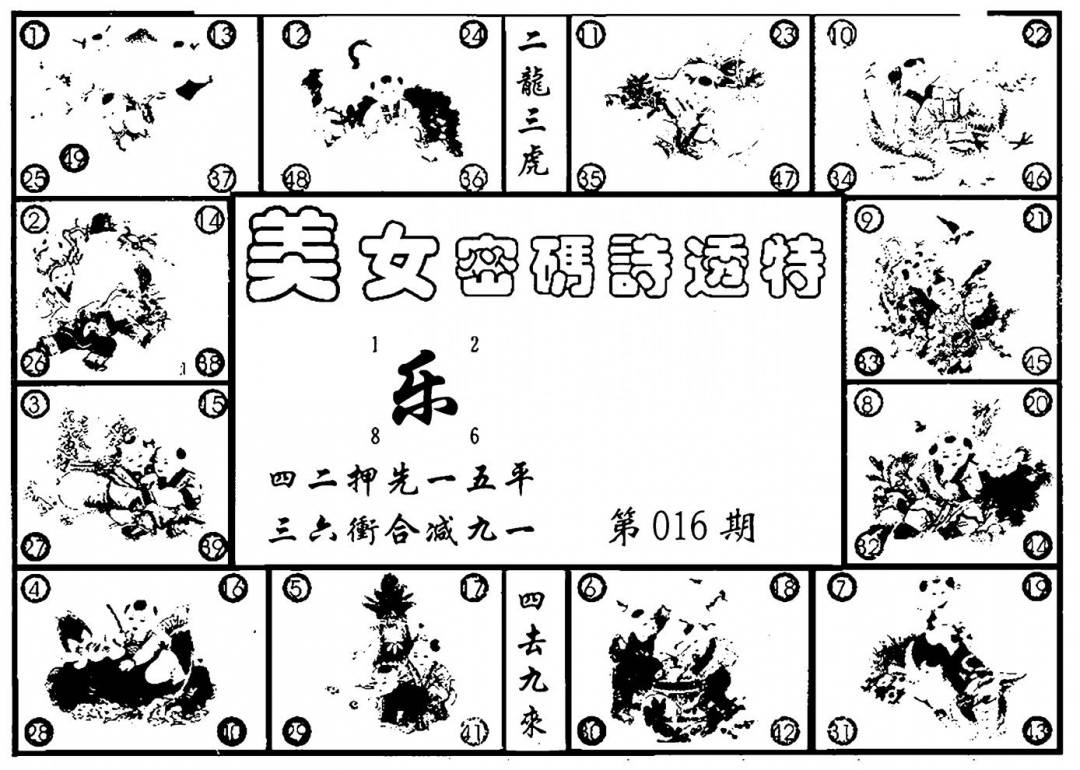 ① ⑬ ⑫ ㉔ 二龍三虎 ⑪ ㉓ ⑩ ㉒
㊾
㉕ ㊲ ㊽ ㊱ ㉟ ㊼ ㉞ ㊻
② ⑭ 美女密碼詩透特 ⑨ ㉑
㉖ ㊳ ㉝ ㊺
1 2
乐
8 6
③ ⑮ ⑧ ⑳
四二押先一五平
三六衝合減九一 第016期
㉗ ㊴ ㉜ ㊹
④ ⑯ ⑤ ⑰ 四去九來 ⑥ ⑱ ⑦ ⑲
㉘ ㊵ ㉙ ㊶ ㉚ ㊷ ㉛ ㊸